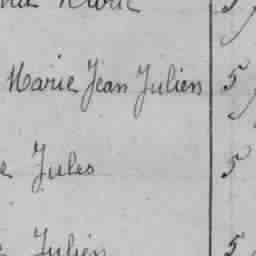 Marie 5
Marie Jean Julien 5
Jules 5
Julien 5